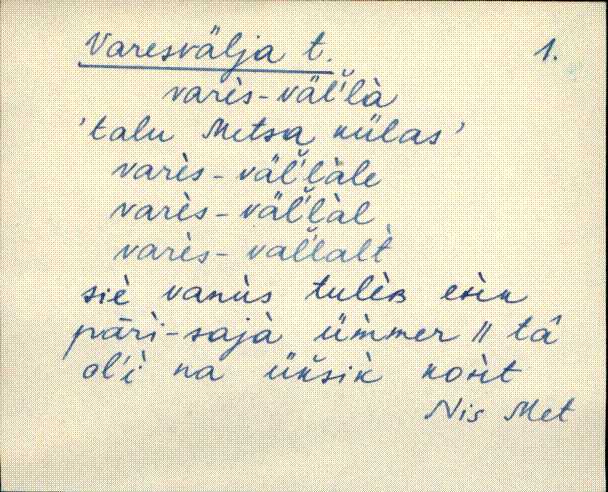 Varesvälja t. 1.
varès-väl̆'là
'talu Metsa külas'
varès-väl̆'làle
varès-väl̆'làl
varès-val̆'lalt̀
siè vanùs tulèʙ
pāri-sajà ümmer || tâ
ol'ì na üksik̀ koh̀t
Nis Met